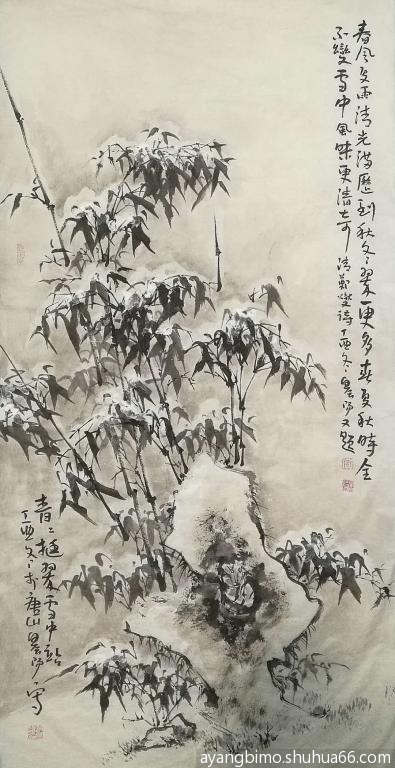 春风夏雨清光满歷到秋冬翠更多春夏秋時全
不變雪中風味更清奇 清鄭燮诗丁酉冬墨陽又题
青青挺翠雪中站
丁酉冬于唐山墨陽写
ayangbimo.shuhua66.com